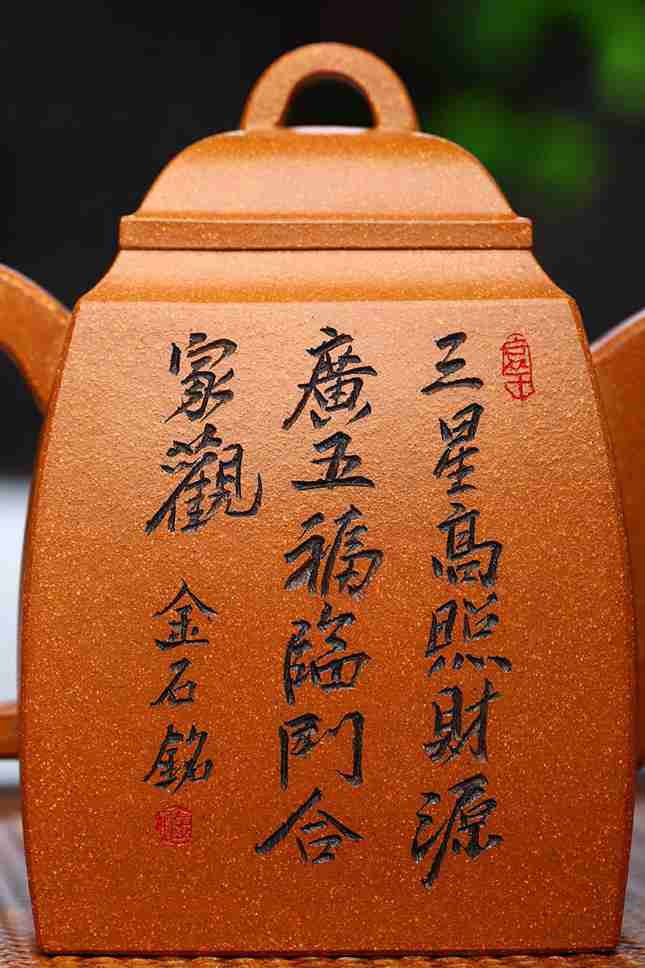 三星高照財源
廣五福臨門合
家觀
金石銘